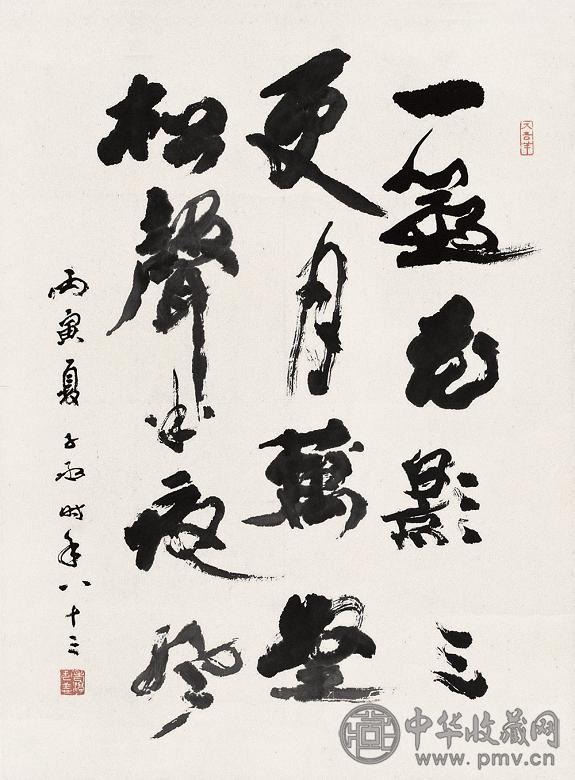 一簾花影三
更月萬壑
松聲半夜風
丙寅夏壽平時年八十三
中华收藏网
www.pmv.cn